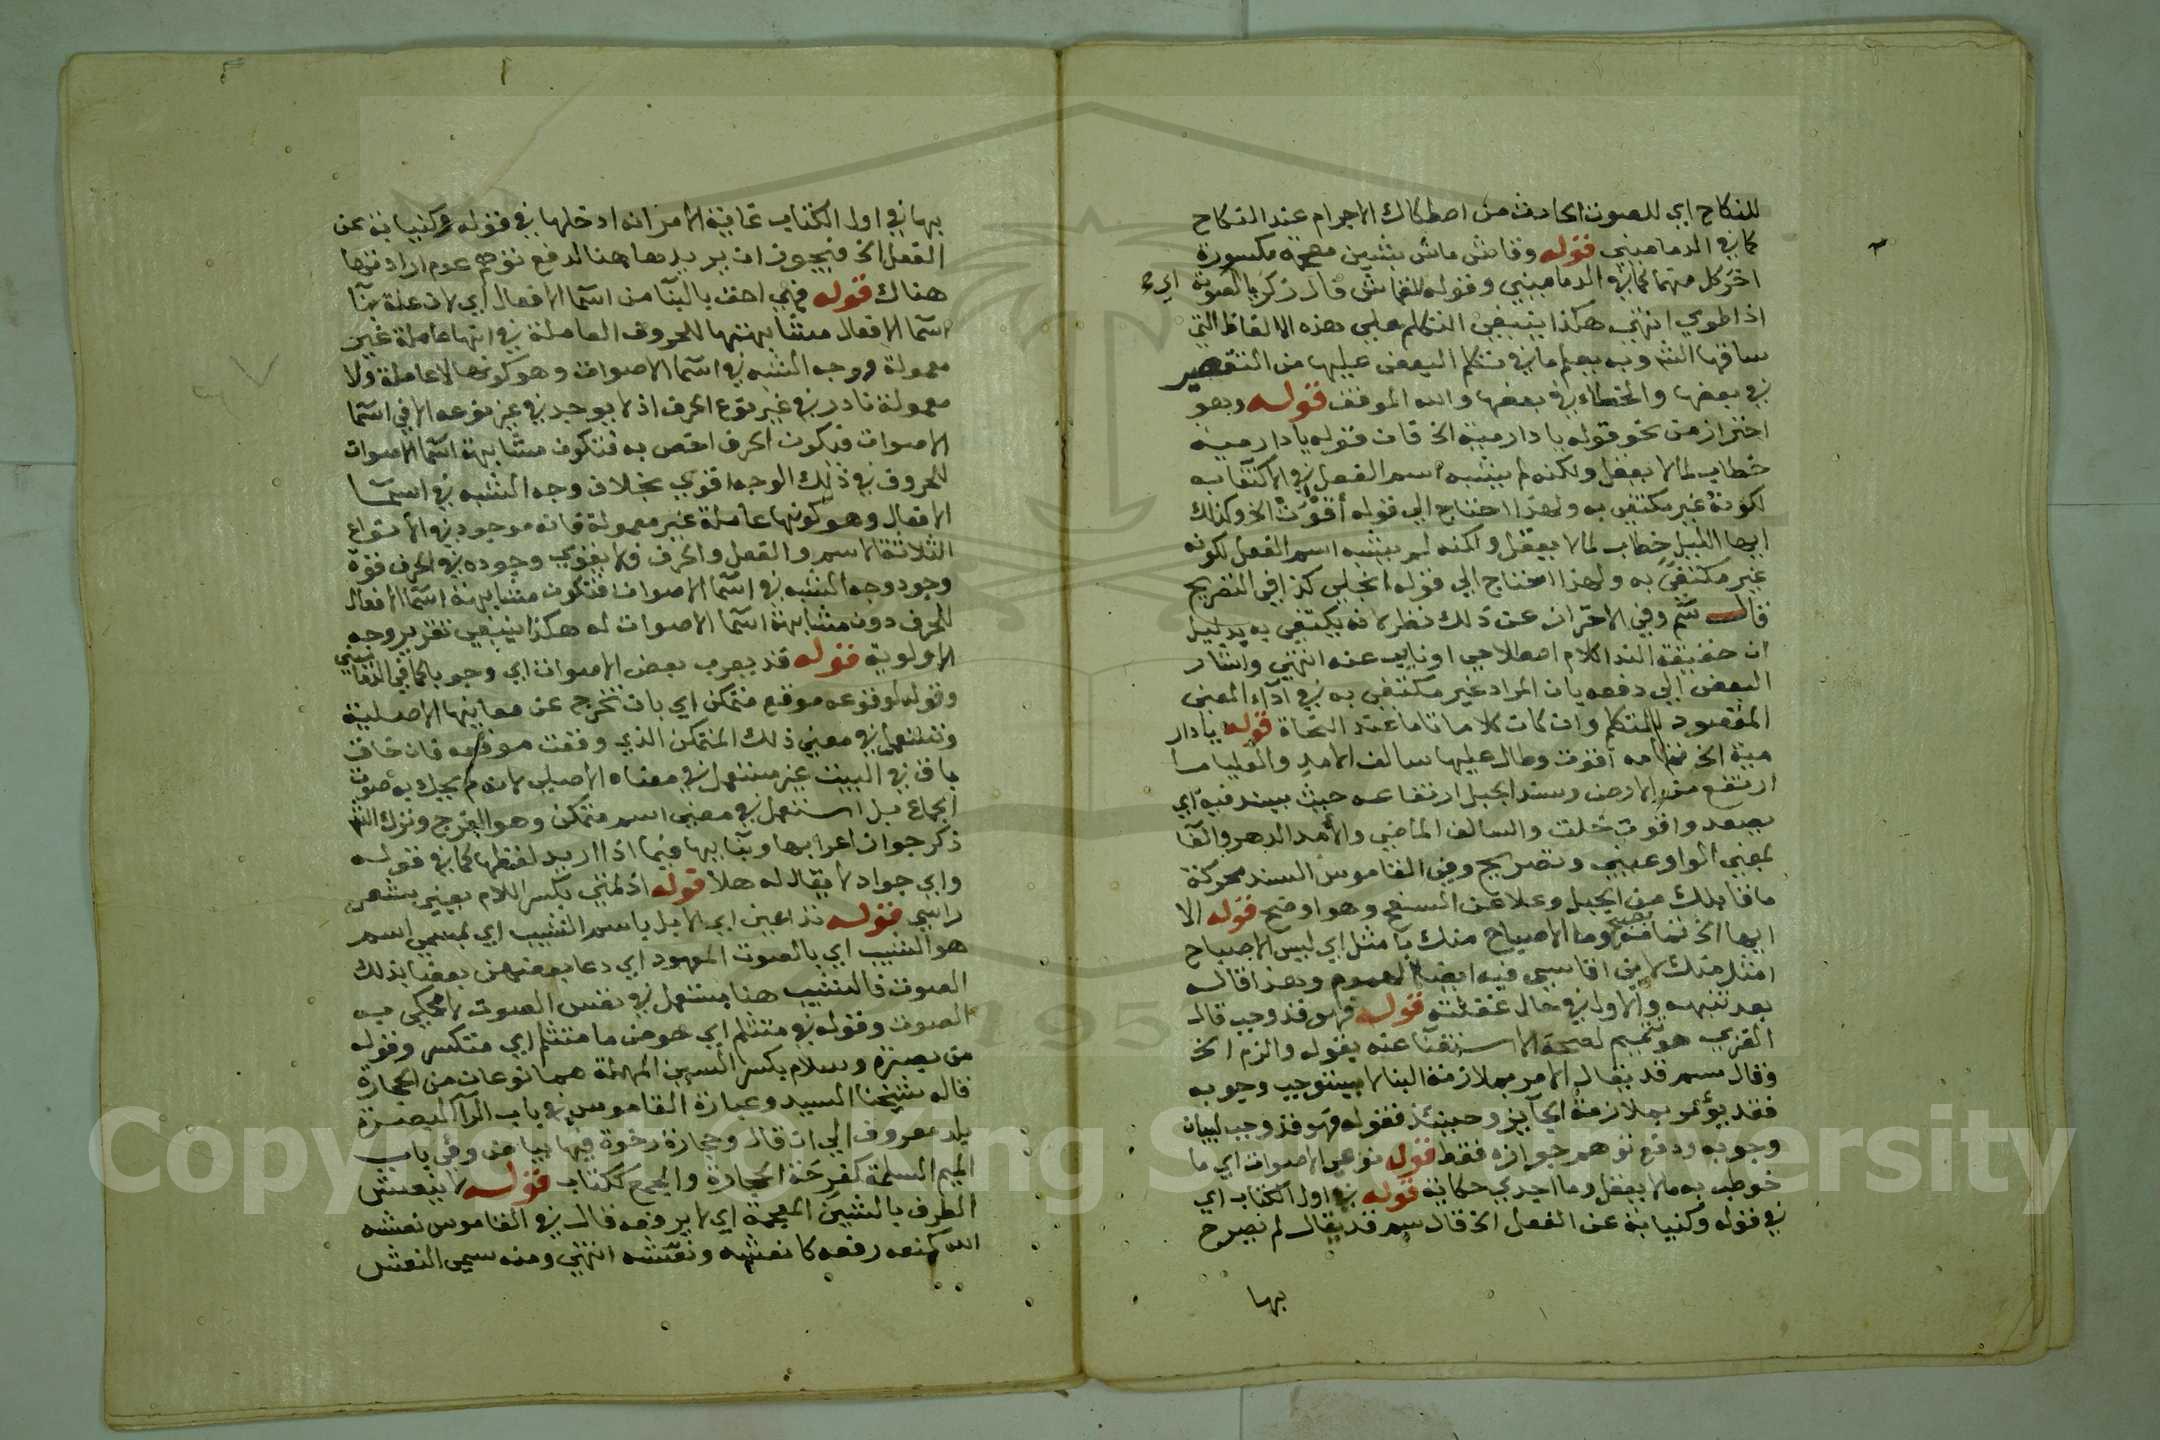 للنكاح اي للصوت الحادث من اصطكاك الاجرام عند النكاح
كما في الدماميني قوله وقاش ماش بشين معجمة مكسورة
اخر كل منهما كما في الدماميني وقوله للقماش قال زكريا لصوته اي
اذا طوي انتهى هكذا ينبغي التكلم على هذه الالفاظ التي
ساقها الش وبه يعلم ما في تكلم البعض عليها من التقصير
في بعضها والخطاء في بعضها والله الموفق قوله وهو
احتراز من نحو قوله يا دار مية الخ فان قوله يا دار مية
خطاب لما لا يعقل ولكنه لم يشبه اسم الفعل في الاكتفا به
لكونه غير مكتفى به ولهذا احتاج الى قوله أقوت الخ وكذلك
ايها الليل خطاب لما لا يعقل ولكنه لم يشبه اسم الفعل لكونه
غير مكتفى به ولهذا احتاج الى قوله انجلي كذا في التصريح
قال سم وفي الاحتراز عن ذلك نظر لانه يكتفى به بدليل
ان حقيقة الندا كلام اصطلاحي او نايب عنه انتهى واشار
البعض الى دفعه بان المراد غير مكتفى به في اداء المعنى
المقصود للمتكلم وان كان كلاما تاما عند النحاة قوله يا دار
مية الخ تمامه اقوت وطال عليها سالف الامد والعليا ما
ارتفع من الارض وسند الجبل ارتفاعه حيث يسند فيه اي
يصعد واقوت خلت والسالف الماضي والأمد الدهر والفا
بمعنى الواو عيني وتصريح وفي القاموس السند محركة
ما قابلك من الجبل وعلا عن السفح وهو اوضح قوله الا
ايها الخ تمامه بصبح وما الاصباح منك بأمثل اي ليس الاصباح
امثل منك لاني اقاسي فيه ايضا الهموم وهذا قاله
بعد تنبهه والاول في حال غفلته قوله فهو قد وجب قال
الغزي هو تتميم لصحة الاستغنا عنه بقوله والزم الخ
وقال سم قد يقال الامر بملازمة البنا لا يستوجب وجوبه
فقد يؤمر بملازمة الجايز وحينئذ فقوله فهو قد وجب لبيان
وجوبه ودفع توهم جوازه فقط قوله نوعي الاصوات اي ما
خوطب به ما لا يعقل وما اجدى حكاية قوله في اول الكتاب اي
في قوله وكنيابة عن الفعل الخ قال سم قد يقال لم نصرح
بها
بها في اول الكتاب غاية الامر انه ادخلها في قوله وكنيابة عن
الفعل الخ فيجوز ان يريدها هنا لدفع توهم عدم ارادتها
هناك قوله فهي احق بالبنا من اسما الافعال اي لان علة بنا
اسما الافعال مشابهتها للحروف العاملة في انها عاملة غير
معمولة ووجه الشبه في اسما الاصوات وهو كونها لا عاملة ولا
معمولة نادر في غير نوع الحرف اذ لا يوجد في غير نوعه الا في اسما
الاصوات فيكون الحرف اختص به فتكون مشابهة اسما الاصوات
للحروف في ذلك الوجه اقوى بخلاف وجه الشبه في اسما
الافعال وهو كونها عاملة غير معمولة فانه موجود في الانواع
الثلاثة الاسم والفعل والحرف فلا يقوى وجوده في الحرف قوة
وجود وجه الشبه في اسما الاصوات فتكون مشابهة اسما الافعال
للحرف دون مشابهة اسما الاصوات له هكذا ينبغي تقرير وجه
الاولوية قوله قد يعرب بعض الاصوات اي وجوبا كما في الدماميني
وقوله لوقوعه موقع متمكن اي بان تخرج عن معانيها الاصلية
وتستعمل في معنى ذلك المتمكن الذي وقعت موقعه فان خاف
باق في البيت غير مستعمل في معناه الاصلي لانه لم يحك به صوت
الجماع بل استعمل في معنى اسم متمكن وهو الفرج وترك الش
ذكر جواز اعرابها وبنايها فيما اذا اريد لفظها كما في قوله
واي جواد لا يقال له هلا قوله اذ لمتي بكسر اللام يعني شعر
راسي قوله تداعين اي الابل باسم الشيب اي بمسمى اسم
هو الشيب اي بالصوت المعهود اي دعا بعضهن بعضا بذلك
الصوت فالشيب هنا مستعمل في نفس الصوت لا محكي به
الصوت وقوله في متثلم اي حوض ما متثلم اي متكسر وقوله
من بصرة وسلام بكسر السين المهملة هما نوعان من الحجارة
قاله شيخنا السيد وعبارة القاموس في باب الرا البصرة
بلد معروف الى ان قال وحجارة رخوة فيها بياض وفي باب
الميم السلمة كفرحة الحجارة والجمع ككتاب قوله لا ينعش
الطرف بالشين المعجمة اي لا يرفعه قال في القاموس نعشه
الله كمنعه رفعه كانعشه ونعشه انتهى ومنه سمي النعش
Copyright © King Saud University